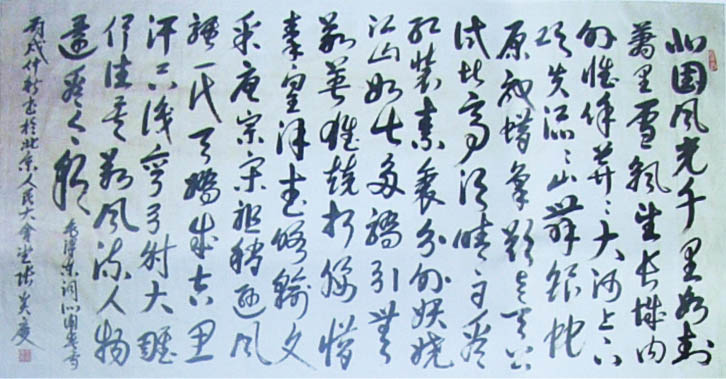 北国风光千里冰封
萬里雪飘望长城内
外惟余莽々大河上下
顿失滔々山舞银蛇
原驰蜡象欲与天公
试比高须晴日看
红装素裹分外妖娆
江山如此多娇引无
数英雄竞折腰惜
秦皇汉武略输文
采唐宗宋祖稍逊风
骚一代天骄成吉思
汗只识弯弓射大雕
俱往矣数风流人物
还看今朝
毛泽东词沁园春雪
丙戌仲秋书於北京人民大会堂张